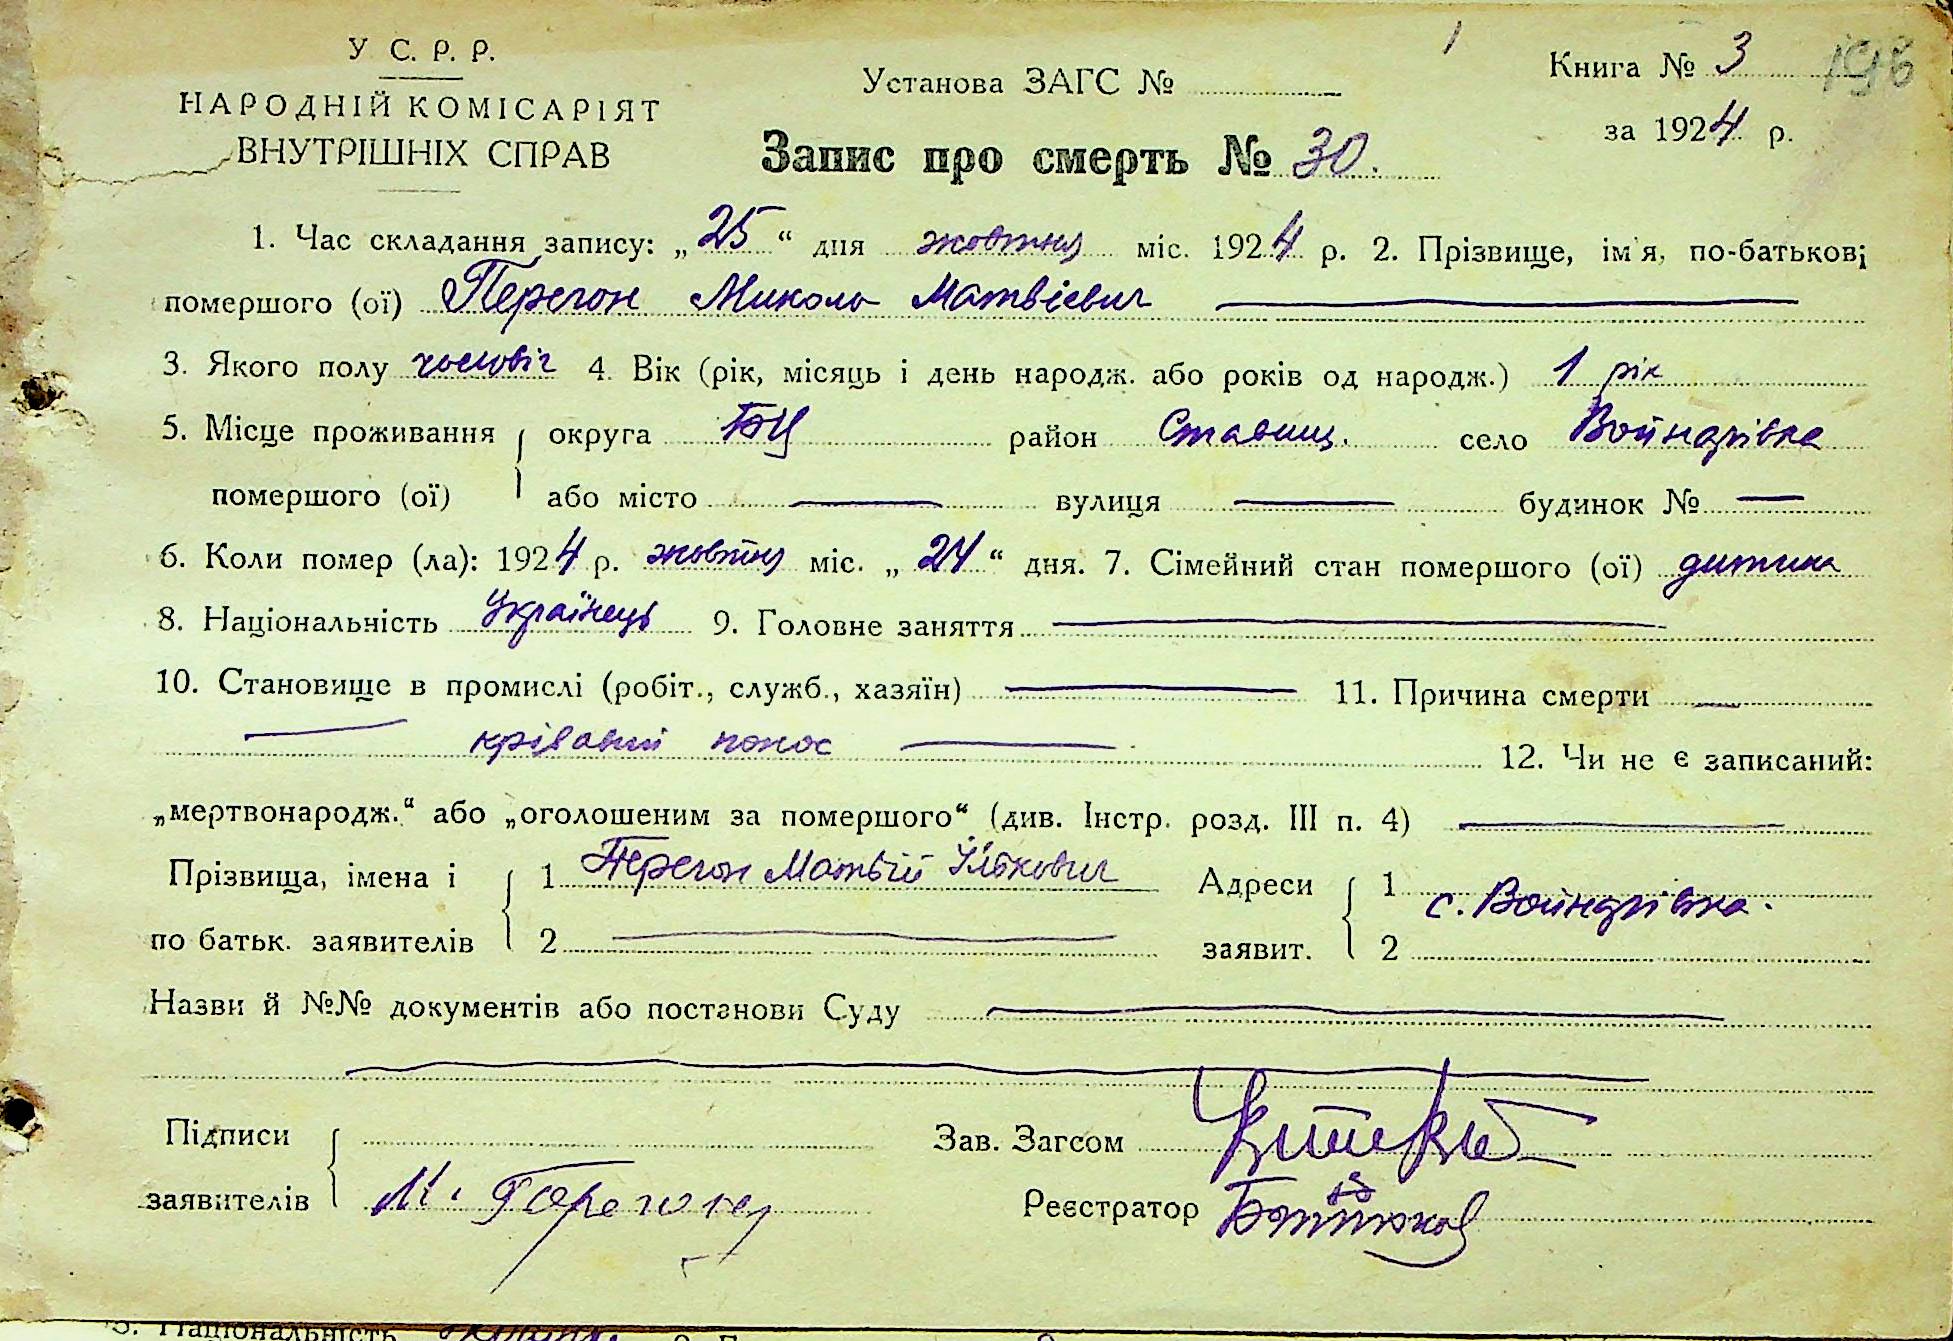 У С. Р. Р.
НАРОДНІЙ КОМІСАРІЯТ
ВНУТРІШНІХ СПРАВ
Установа ЗАГС №
Книга № 3
198
за 1924 р.
Запис про смерть № 30.
1. Час складання запису: „25“ дня жовтня міс. 1924 р. 2. Прізвище, ім'я, по-батькові
помершого (ої) Перегон Микола Матвієвич
3. Якого полу чоловіч 4. Вік (рік, місяць і день народж. або років од народж.) 1 рік
5. Місце проживання округа БЦ район Ставищ. село Войнарівка
помершого (ої) або місто вулиця будинок №
6. Коли помер (ла): 1924 р. жовтня міс. „24“ дня. 7. Сімейний стан помершого (ої) дитина
8. Національність Українець 9. Головне заняття
10. Становище в промислі (робіт., служб., хазяїн) 11. Причина смерти
крівавий понос 12. Чи не є записаний:
„мертвонародж.“ або „оголошеним за помершого“ (див. Інстр. розд. III п. 4)
Прізвища, імена і 1 Перегон Матвій Адреси 1 с. Войнарівка.
по батьк. заявителів 2 заявит. 2
Назви й №№ документів або постанови Суду
Підписи Зав. Загсом
заявителів М. Реєстратор
Національність